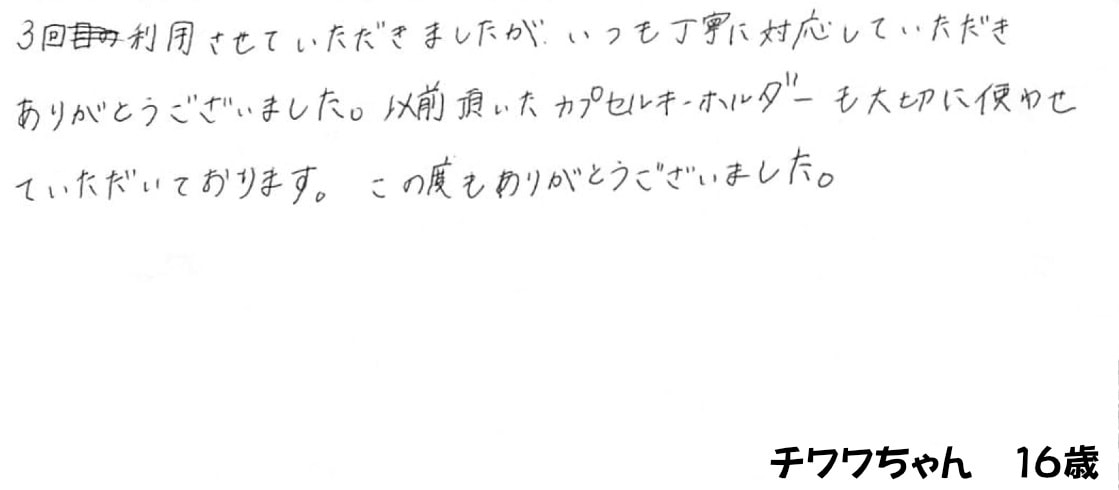 3回利用させていただきましたが、いつも丁寧に対応していただき
ありがとうございました。以前頂いたカプセルキーホルダーも大切に使わせ
ていただいております。この度もありがとうございました。
チワワちゃん　16歳